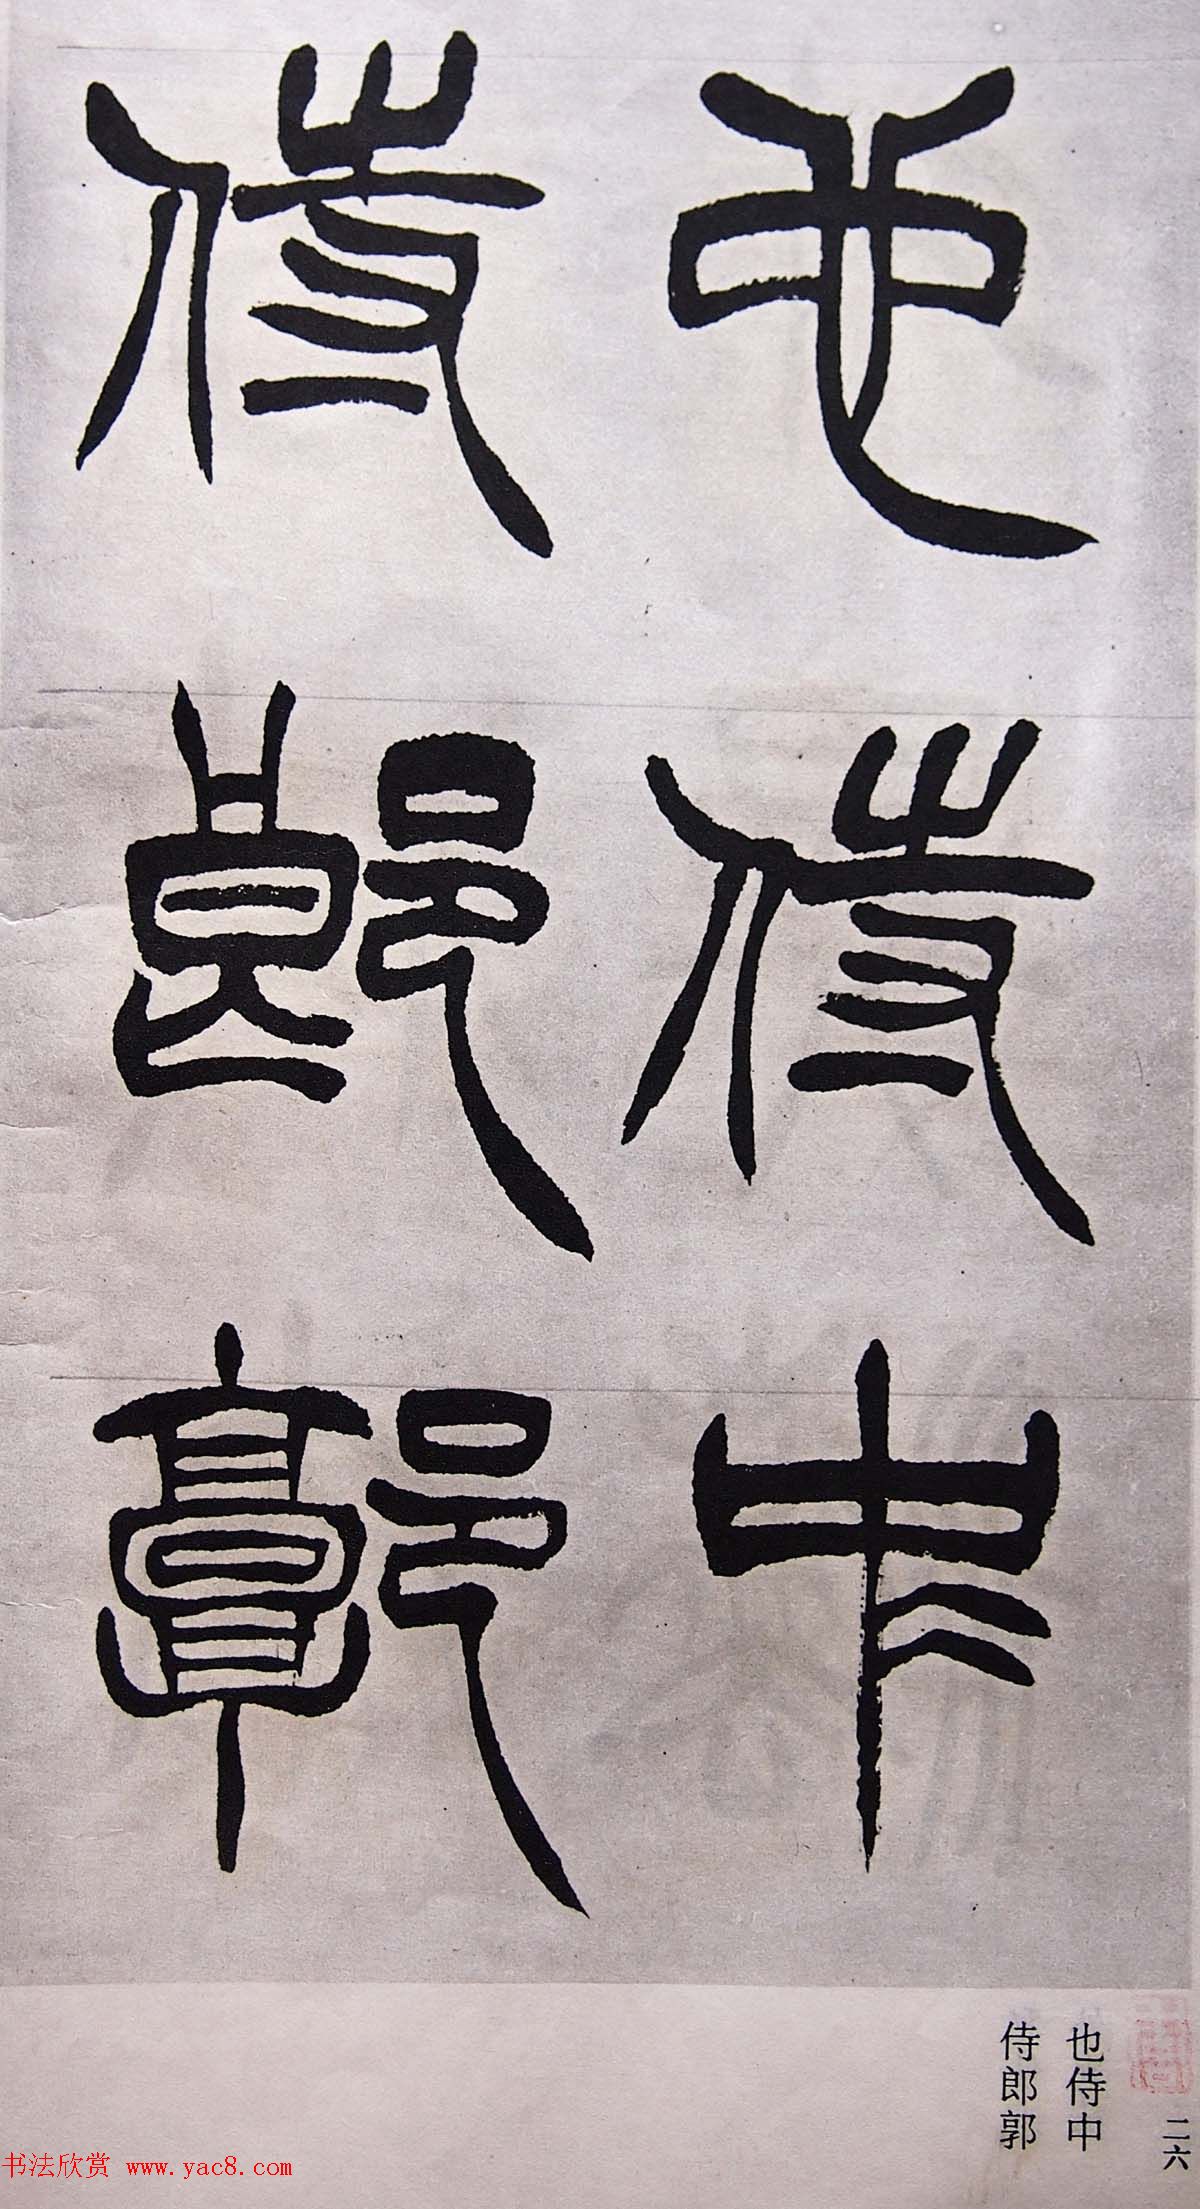 也侍中
侍郎郭
也侍中
侍郎郭
二六
书法欣赏 www.yac8.com